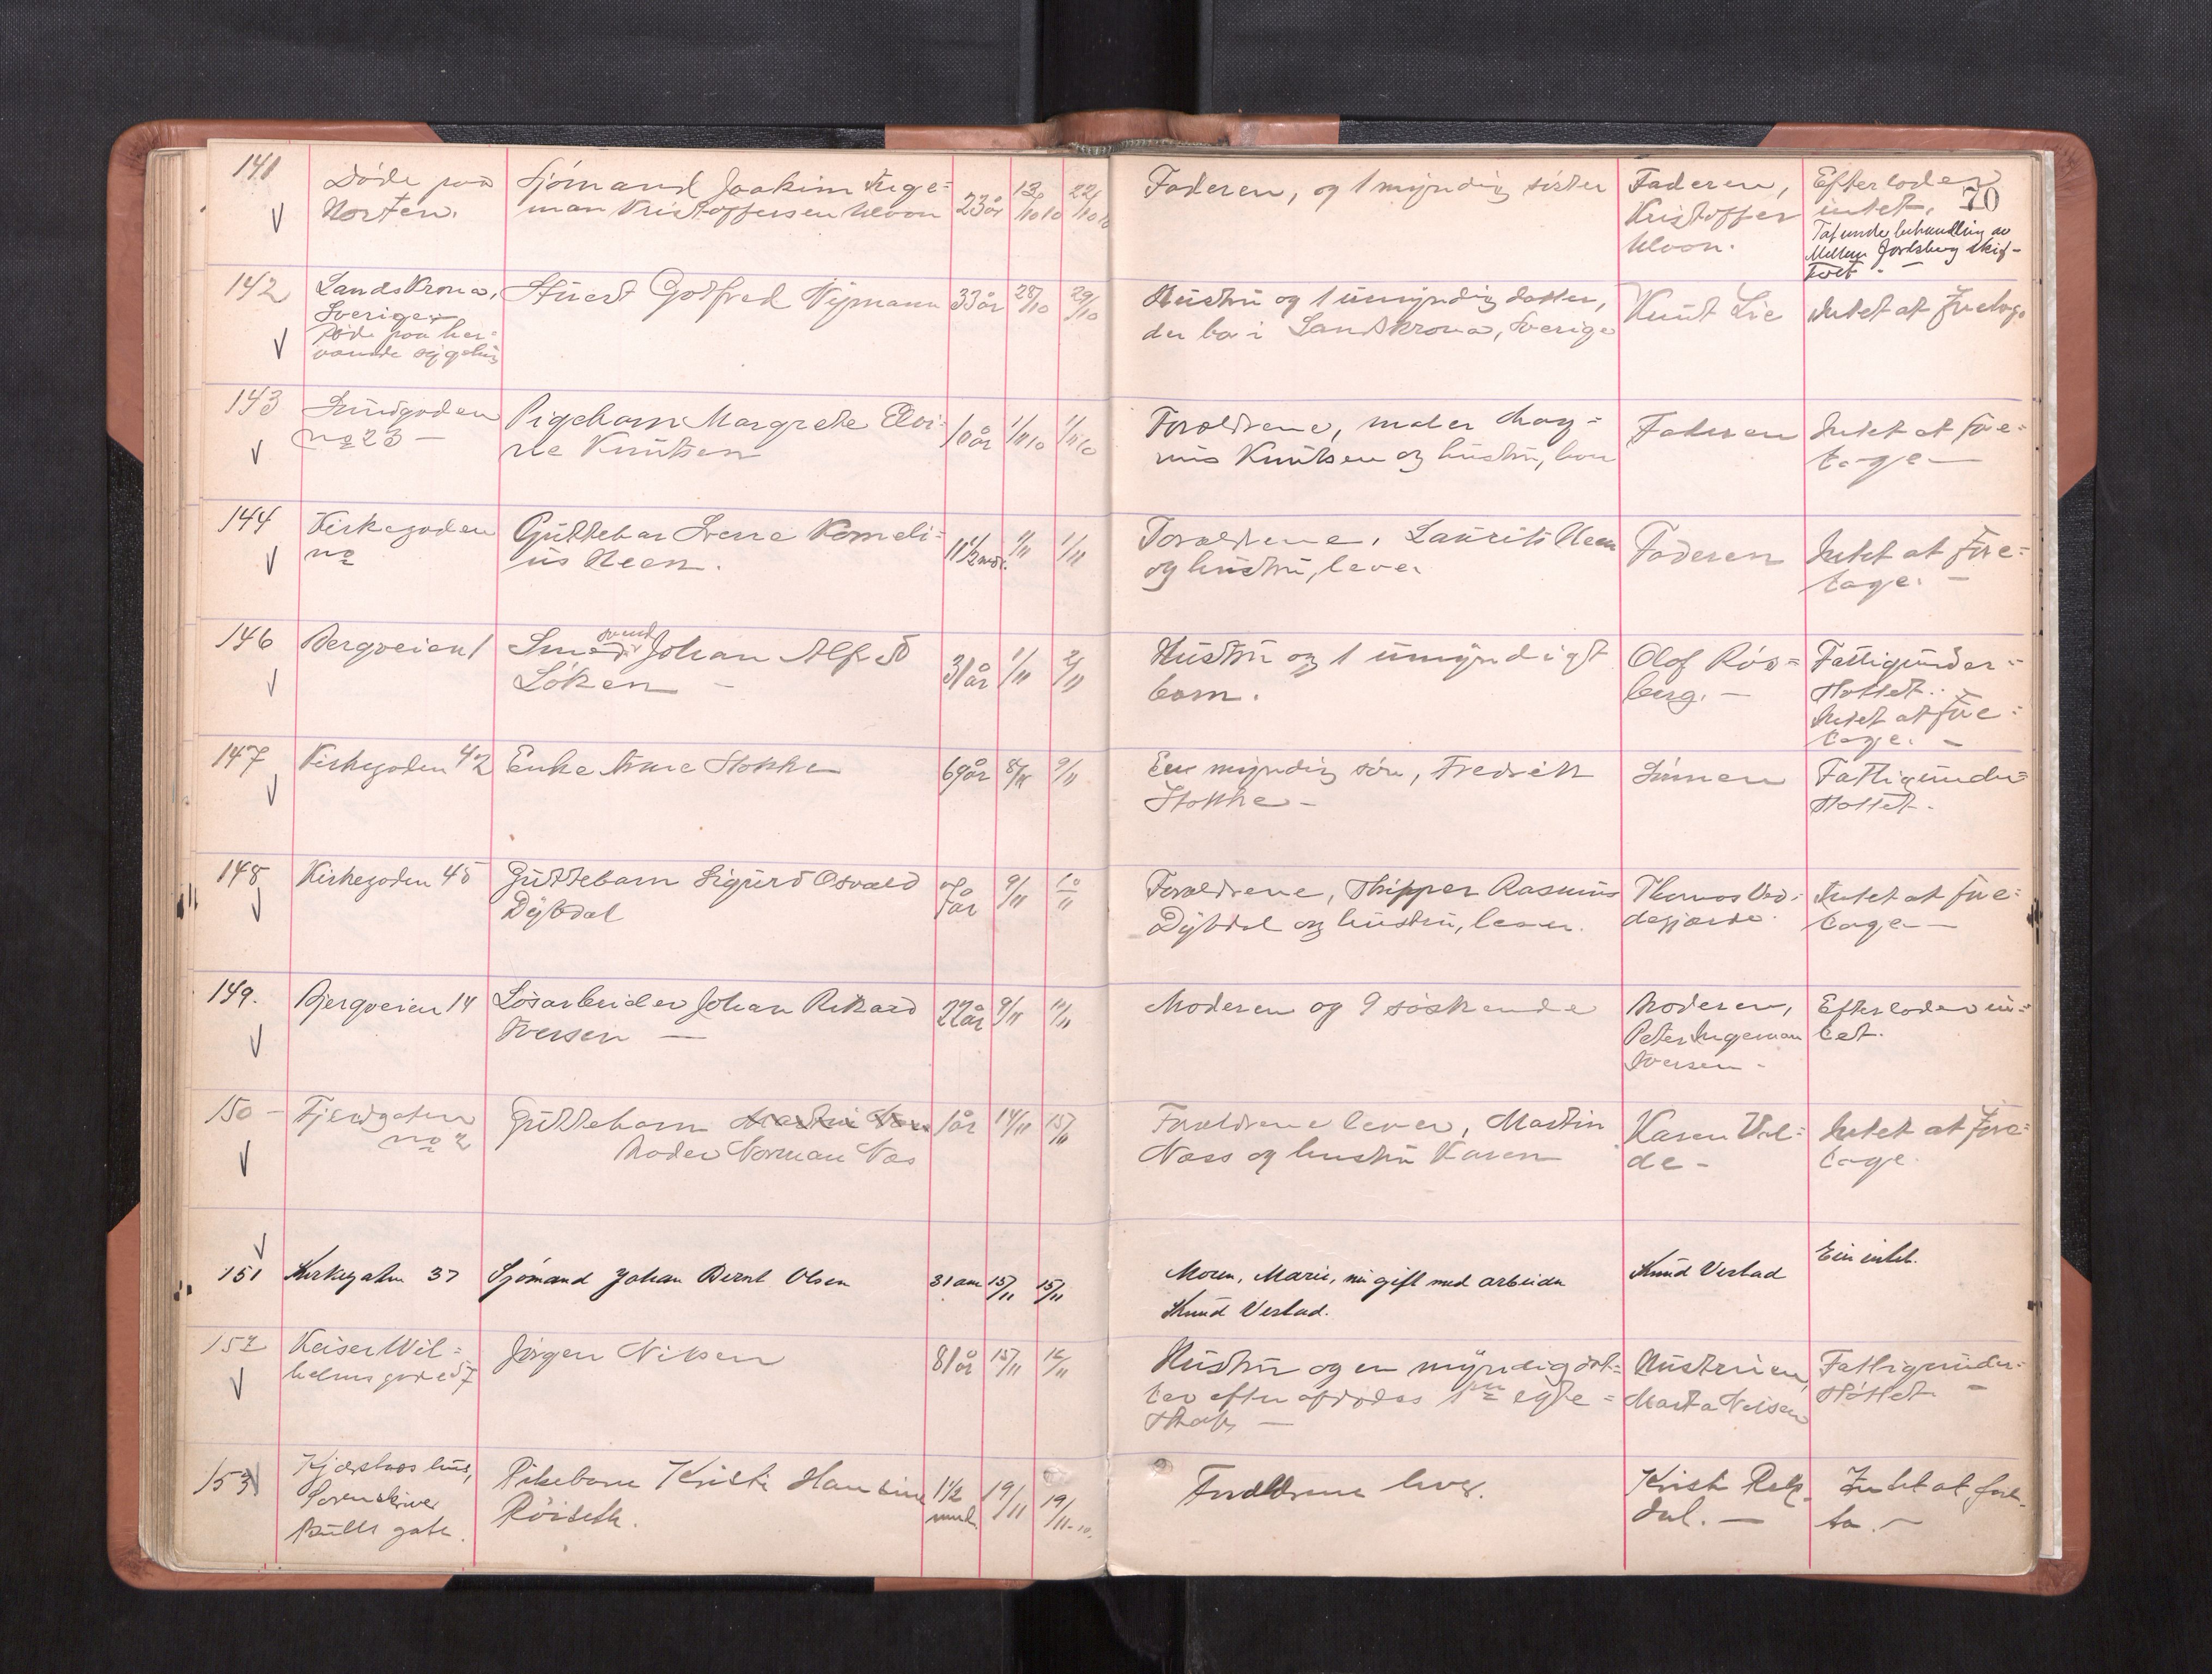 70
141
Døde paa
Horten.
Sjømand Joakim Inge=
man Kristoffersen Uloon
23 år
13/10 10
22/10 10
Faderen, og 1 myndig søster
Faderen,
Kristoffer
Uloon.
Efterloder
intet.
Tat under behandling av
Mellem Jarlsberg skif-
teret -
142
Landskrona,
Sverige.
Døde paa her-
værende sygehus
Stuert Gotfred Nymann
33 år
28/10
29/10
Hustru og 1 umyndig datter,
der bor i Landskrona, Sverige
Knut Lie
Intet at foretage
143
Sundgaden
no 23 -
Pigebarn Margrethe Elvi-
ne Knutsen
10 år
1/11 10
1/11 10
Forældrene, maler Mag=
nus Knutsen og hustru, bor
Faderen
Intet at fore=
tage -
144
Kirkegaden
no
Guttebar Sverre Korneli=
us Ueen.
11 1/2 mdr.
1/11
1/11
Forældrene, Laurits Ueen
og hustru, lever
Faderen
Intet at fore=
tage. -
146
Bergveien 1
svend
Smed Johan Alfred
Løken -
31 år
1/11
2/11
Hustru og 1 umyndigt
barn.
Olof Ros=
berg. -
Fattigunder=
støttet.
Intet at fore=
tage. -
147
Kirkegaden 42
Enke Anne Stokke
69 år
8/11
9/11
En myndig søn, Fredrik
Stokke -
Sønnen
Fattigunder=
støttet.
148
Kirkegaden 45
Guttebarn Sigurd Osvald
Dybdal
år
9/11
10/11
Forældrene, skipper Rasmus
Dybdal og hustru, lever.
Thomas Ved-
degjærde.
Intet at fore=
tage -
149.
Bjergveien 14
Løsarbeider Johan Rikard
Iversen -
22 år
9/11
11/11
Moderen og 9 søskende
Moderen,
Peter Ingeman
Iversen -
Efterloder in=
tet.
150 -
Fjeldgaten
no 2
Guttebarn
Norman Næs
1 år
14/11
15/11
Forældrene lever, Martin
Næss og hustru Karen
Karen Val=
de -
Intet at fore=
tage.
151
Kirkegaten 37
Sjømand Johan Bernt Olsen
31 aar
15/11
15/11
Moren, Marie, nu gift med arbeider
Knud Verstad.
Knud Verstad
Eier intet.
152
Keiser Wil=
helms gade 57
Jørgen Nilsen
81 år
15/11
16/11
Hustru og en myndig dat=
ter efter afdødes 1ste egte=
skab -
Hustruen,
Marta Nilsen
Fattigunder-
støttet -
153
Kjærstads hus,
Sorenskriver
Bulls gate.
Pikebarn Kristi Hansine
Røiseth.
1 1/2
mnd.
19/11
19/11-10.
Forældrene lever.
Kristi Rek-
dal. -
Intet at fore-
ta. -